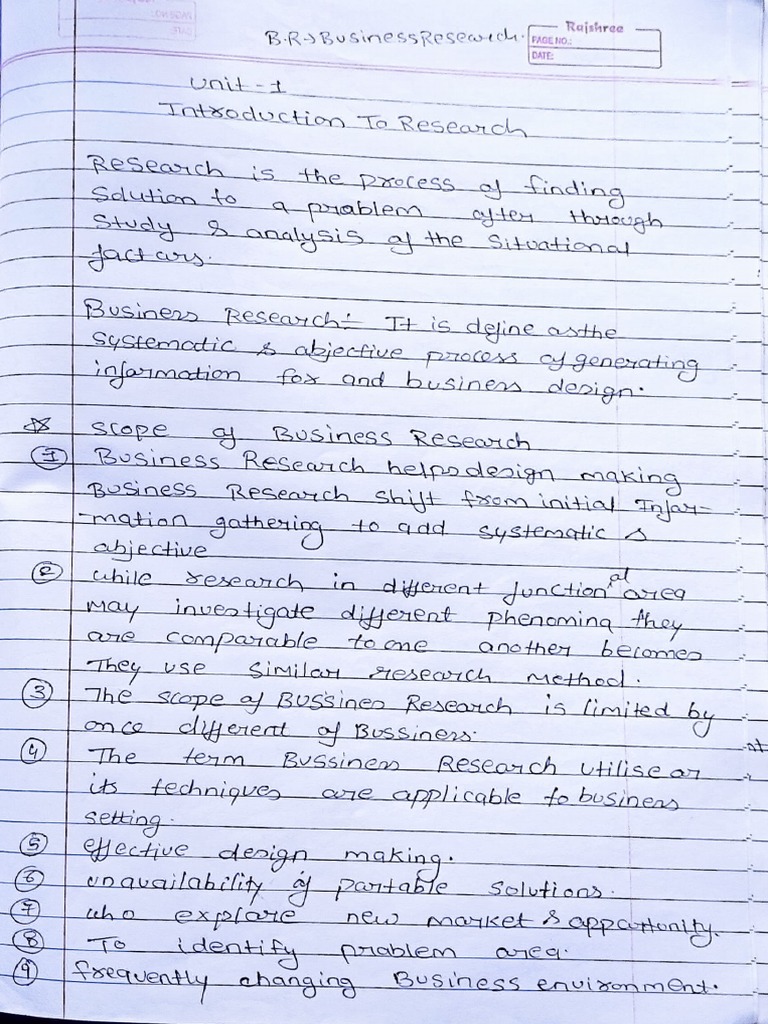 B.R→BusinessResearch.
Rajshree
PAGE NO.:
DATE:
Unit-1
Introduction To Research
Research is the process of finding
solution to a problem after through
study & analysis of the situational
factors.
Business Research:- It is define as the
systematic & abjective process of generating
information for and business design.
☆ scope of Business Research
① Business Research helps design making
Business Research shift from initial Infor-
-mation gathering to add systematic &
abjective
② while research in different functional area
may investigate different phenoming they
are comparable to one another becomes
They use similar research method.
③ The scope of Bussines Research is limited by
once different of Bussiness.
④ The term Bussiness Research utilise or
its techniques are applicable to business
setting.
⑤ effective design making.
⑥ unavailability of partable solutions.
⑦ who explare new market & appartunity.
⑧ To identify problem area.
⑨ frequently changing Business environment.